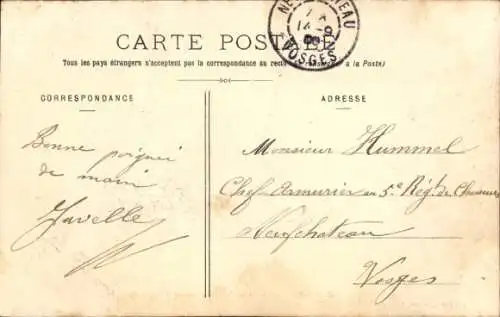 CARTE POSTALE
Tous les pays étrangers n'acceptent pas la correspondance au recto
à la Poste)
VOSGES
CORRESPONDANCE
ADRESSE
Bonne poignée
de main
Javelle
Monsieur Hummel
Chef armurier au 5e Régt. de Chasseurs
Neufchateau
Vosges